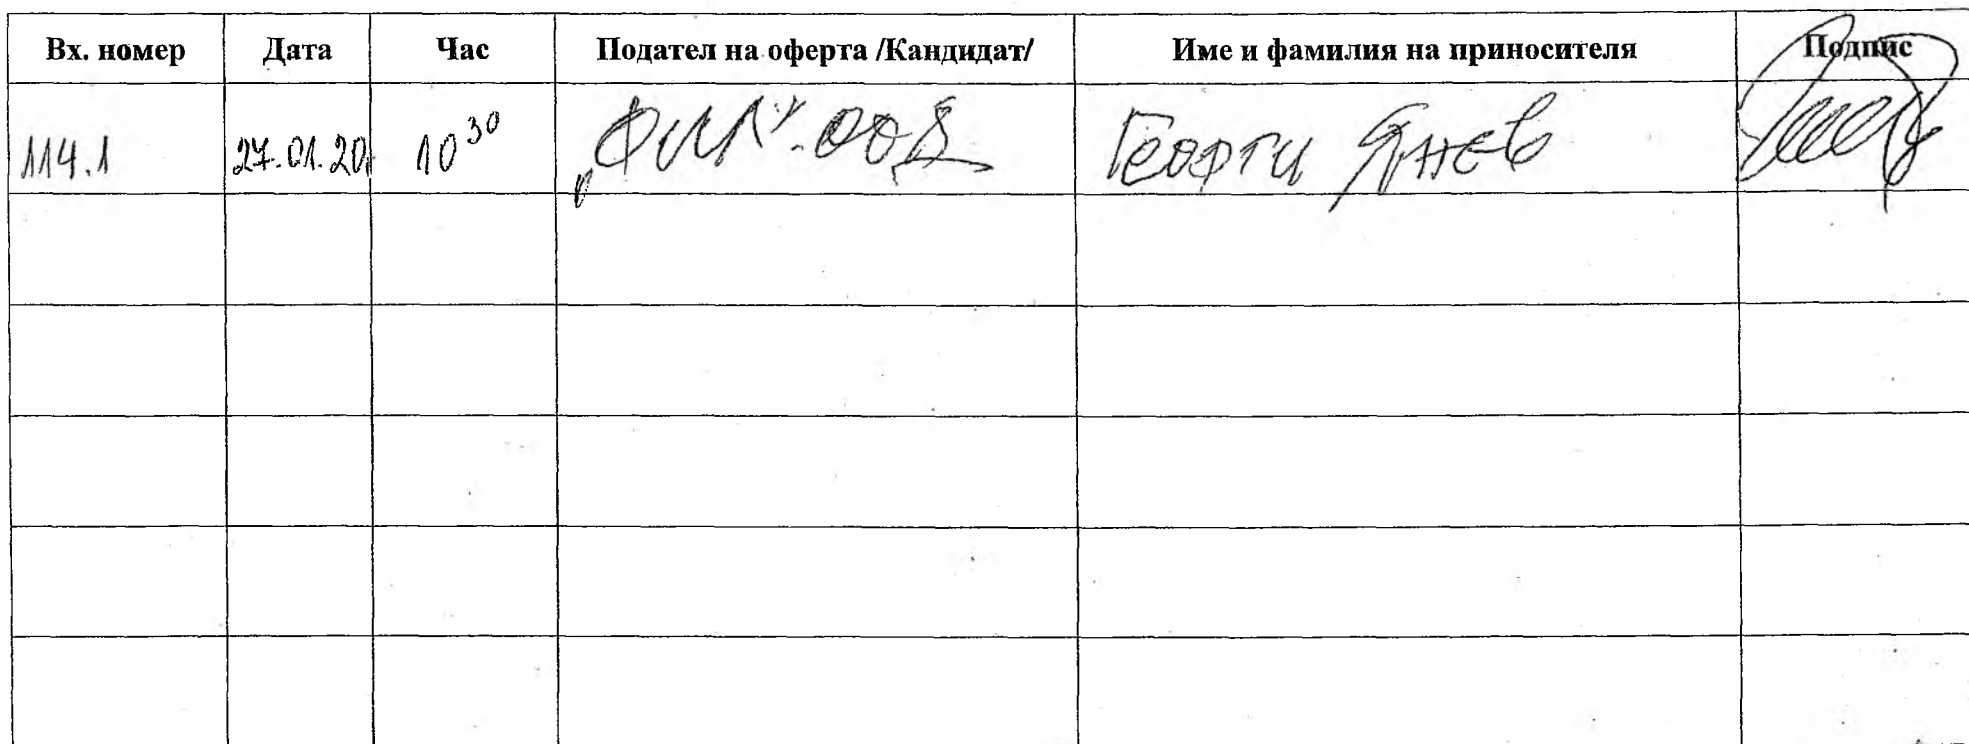 Вх. номер Дата Час Подател на оферта /Кандидат/ Име и фамилия на приносителя Подпис
114.1 27.01.20 10³⁰ ООД Георги Янев